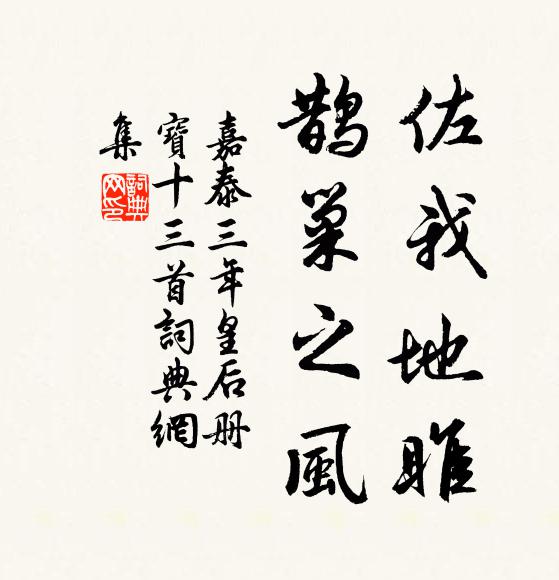 佐我地睢
鵲巢之風
嘉泰三年皇后册
寶十三首詞典網
集
詞典
网印